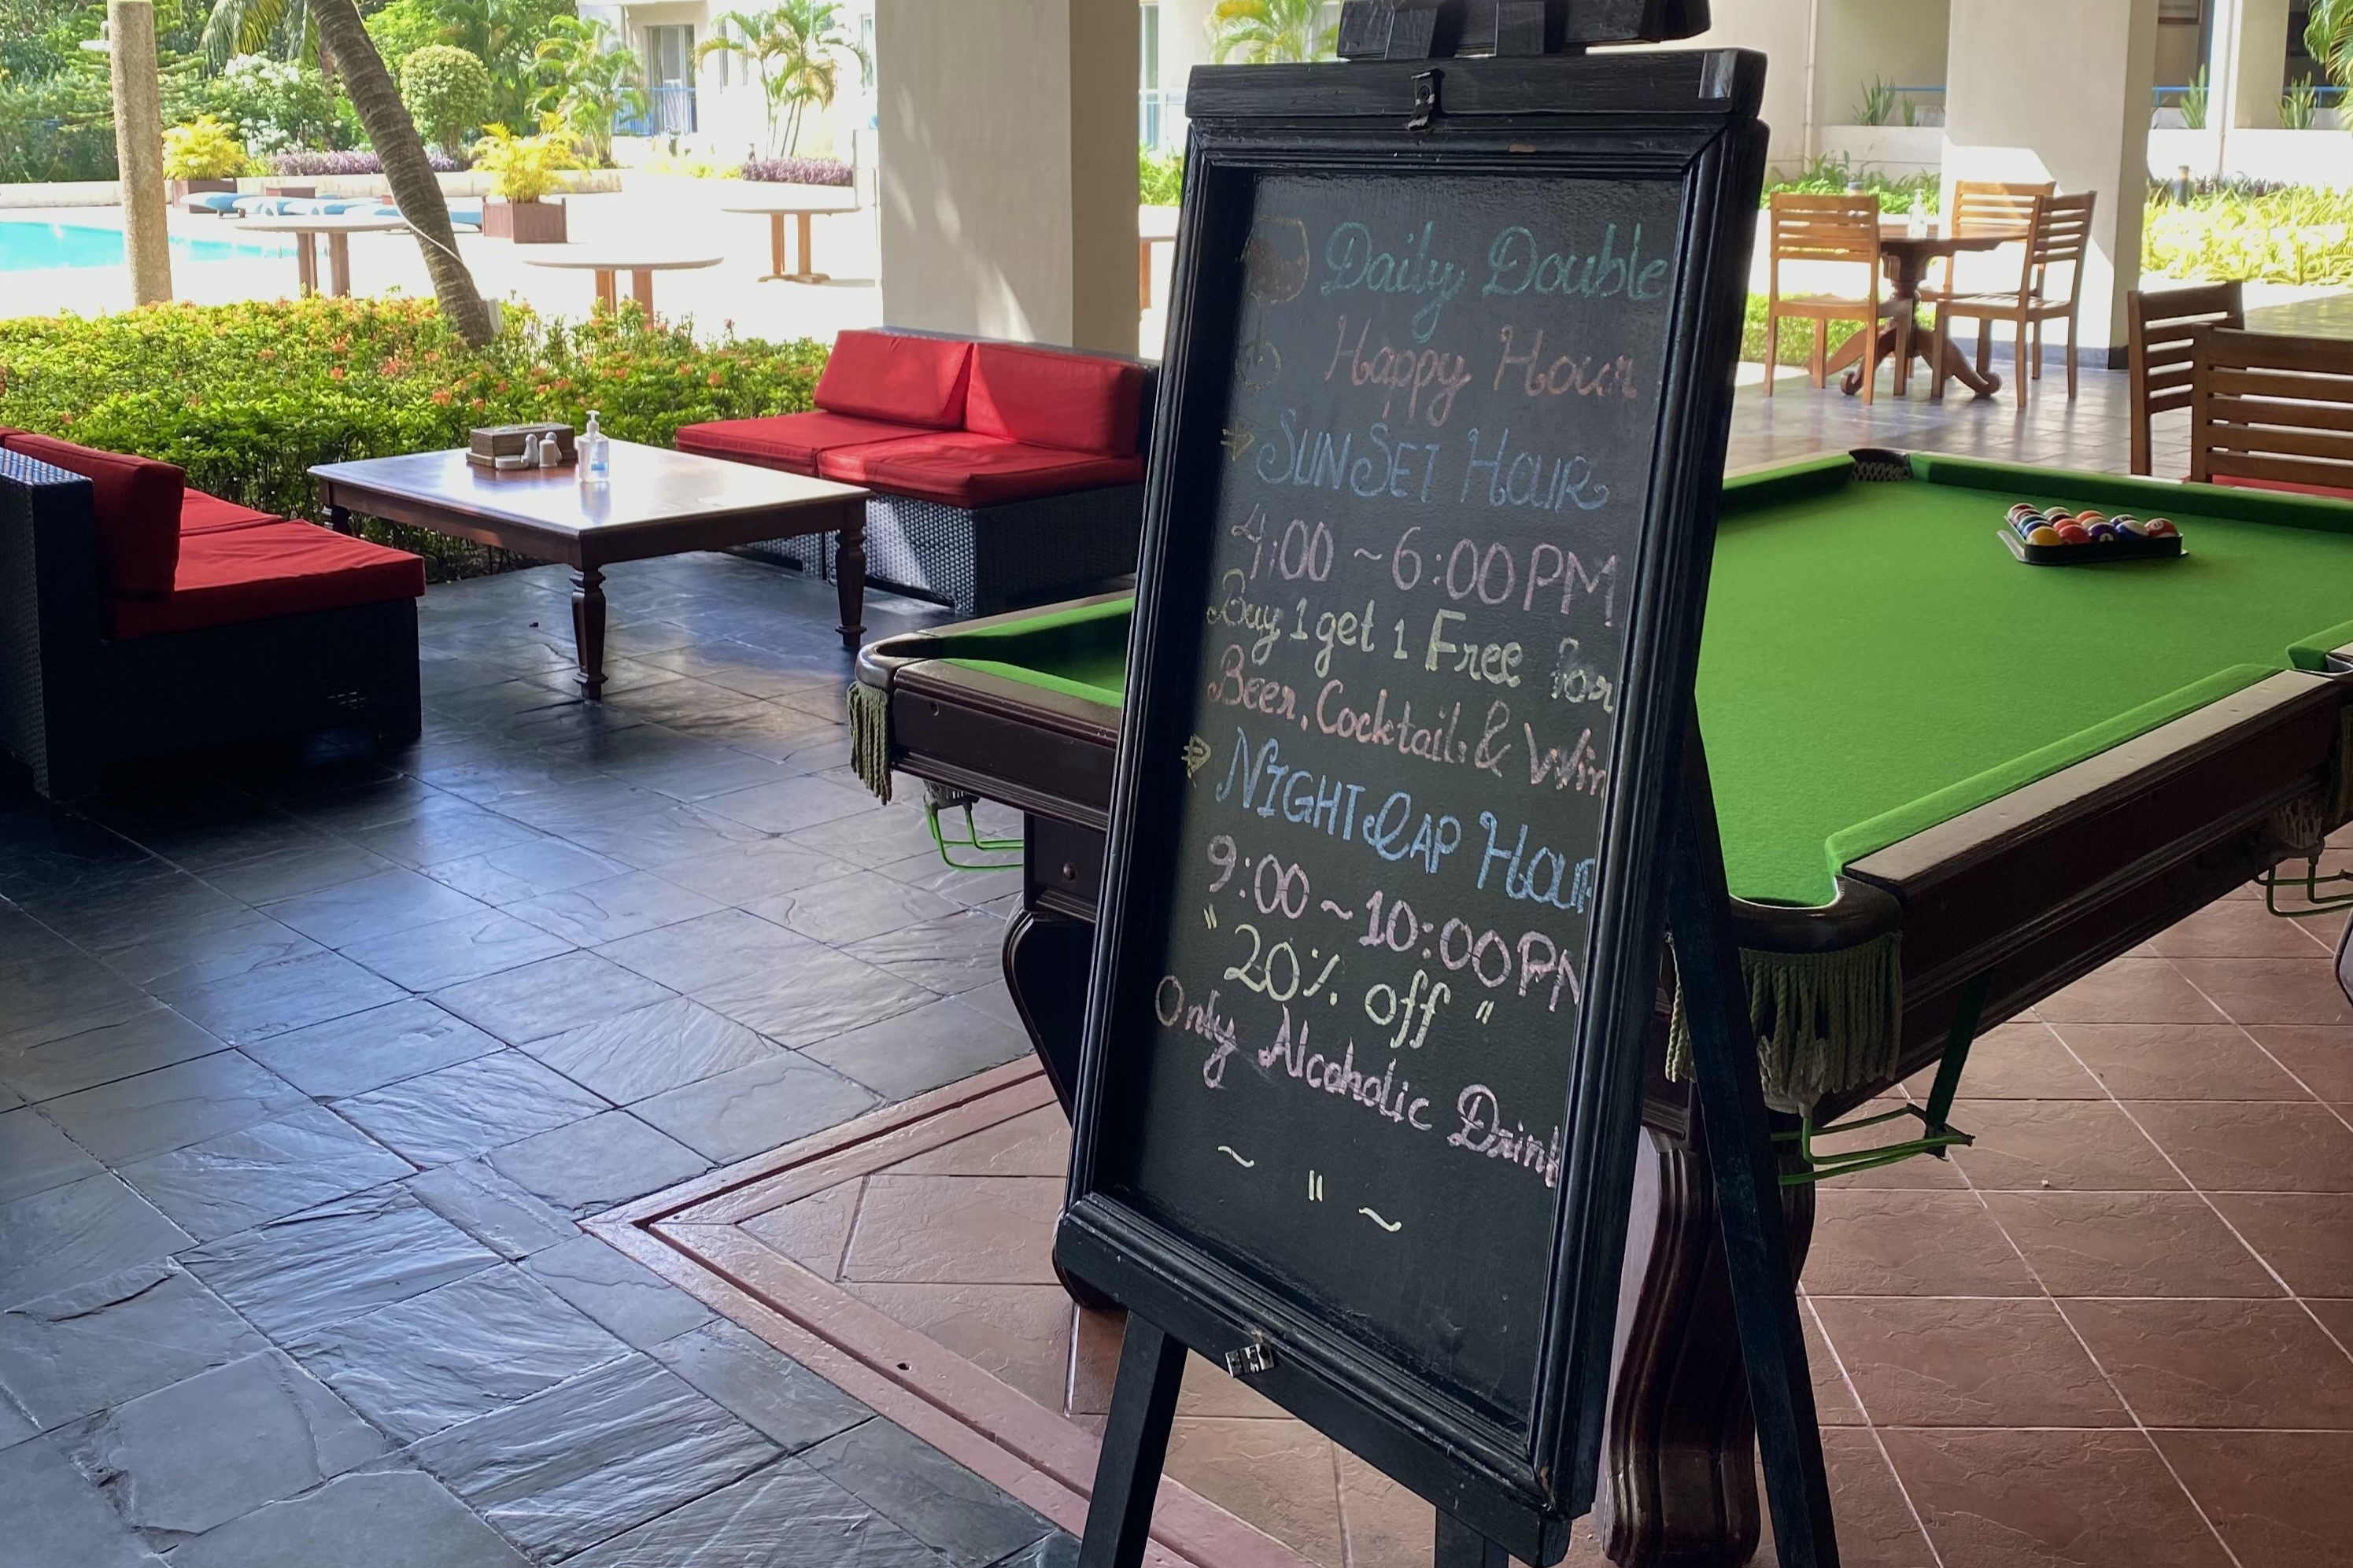 Daily Double
Happy Hour
SUNSET HOUR
4:00 ~ 6:00 PM
Buy 1 get 1 Free for
Beer, Cocktails & Win
NIGHT CAP HOUR
9:00 ~ 10:00 PM
"20% off"
Only Alcoholic Drink
~ " ~